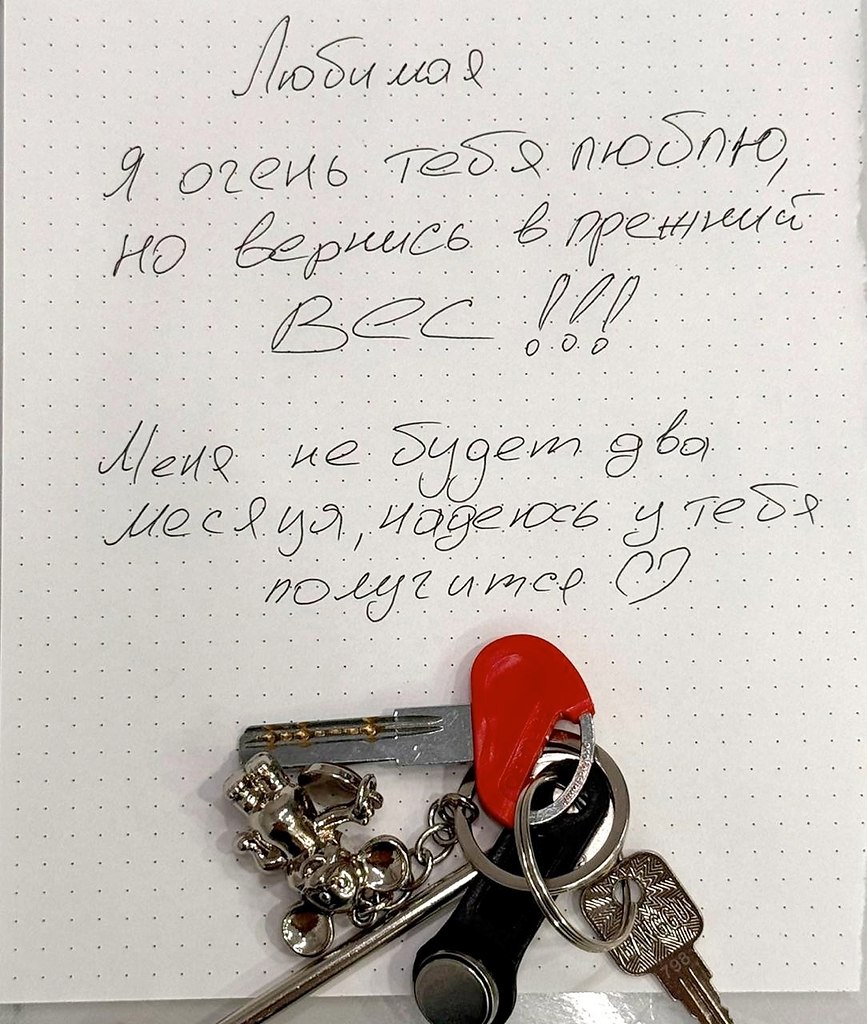 Любимая
Я очень тебя люблю,
но вернись в прежний
Вес !!!
Меня не будет два
месяца, надеюсь у тебя
получится ♡
798